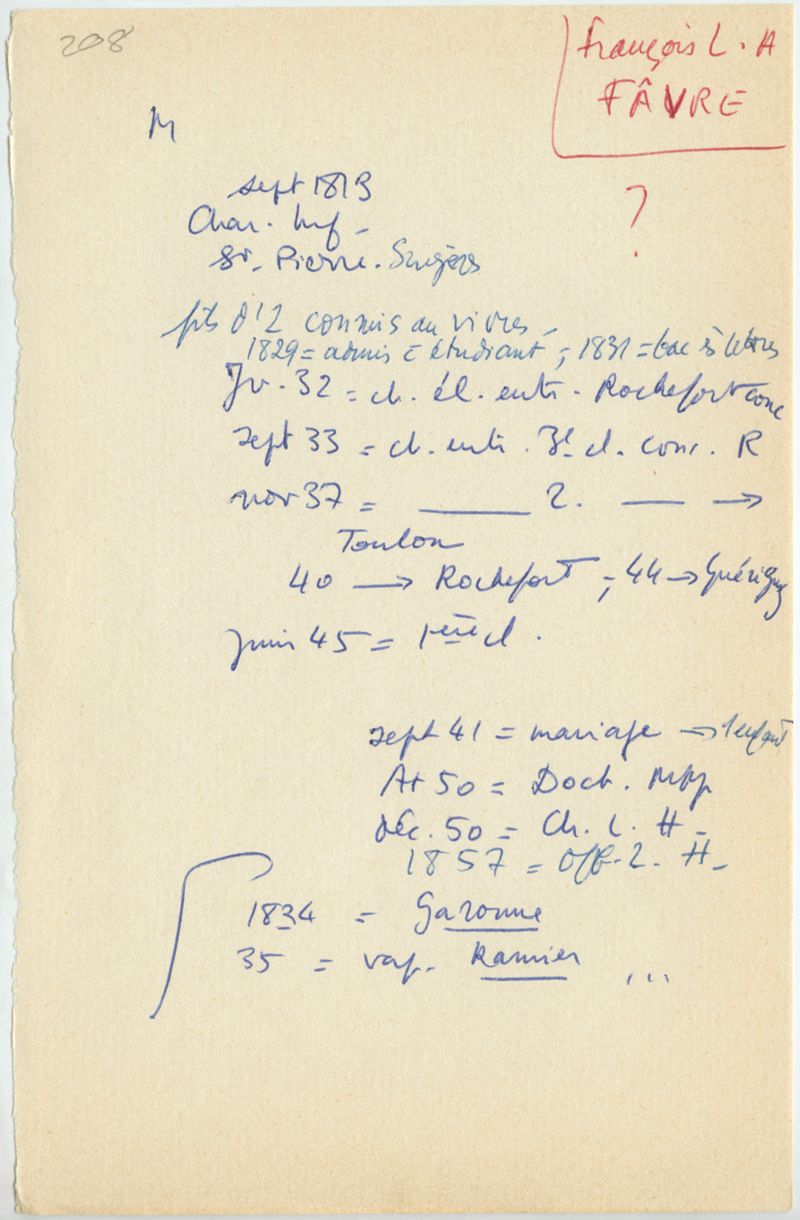 208
François L. A
FÂVRE
?
M
sept 1813
Char. Inf -
St. Pierre. Surgères
fils d'1 commis au vivres -
1829 = admis = étudiant ; 1831 = bac ès lettres
Jv. 32 = ch. él. entr. Rochefort conc
sept 33 = ch. entr. 3e cl. conc. R
nov 37 = ——— 2. — →
Toulon
40 → Rochefort ; 44 → Guérigny
juin 45 = 1ère cl.
sept 41 = mariage → 1 enfant
At 50 = Doct. Mpp
déc. 50 = Ch. L. H -
1857 = Off. L. H -
1834 = Garonne
35 = vap. Ramier ...